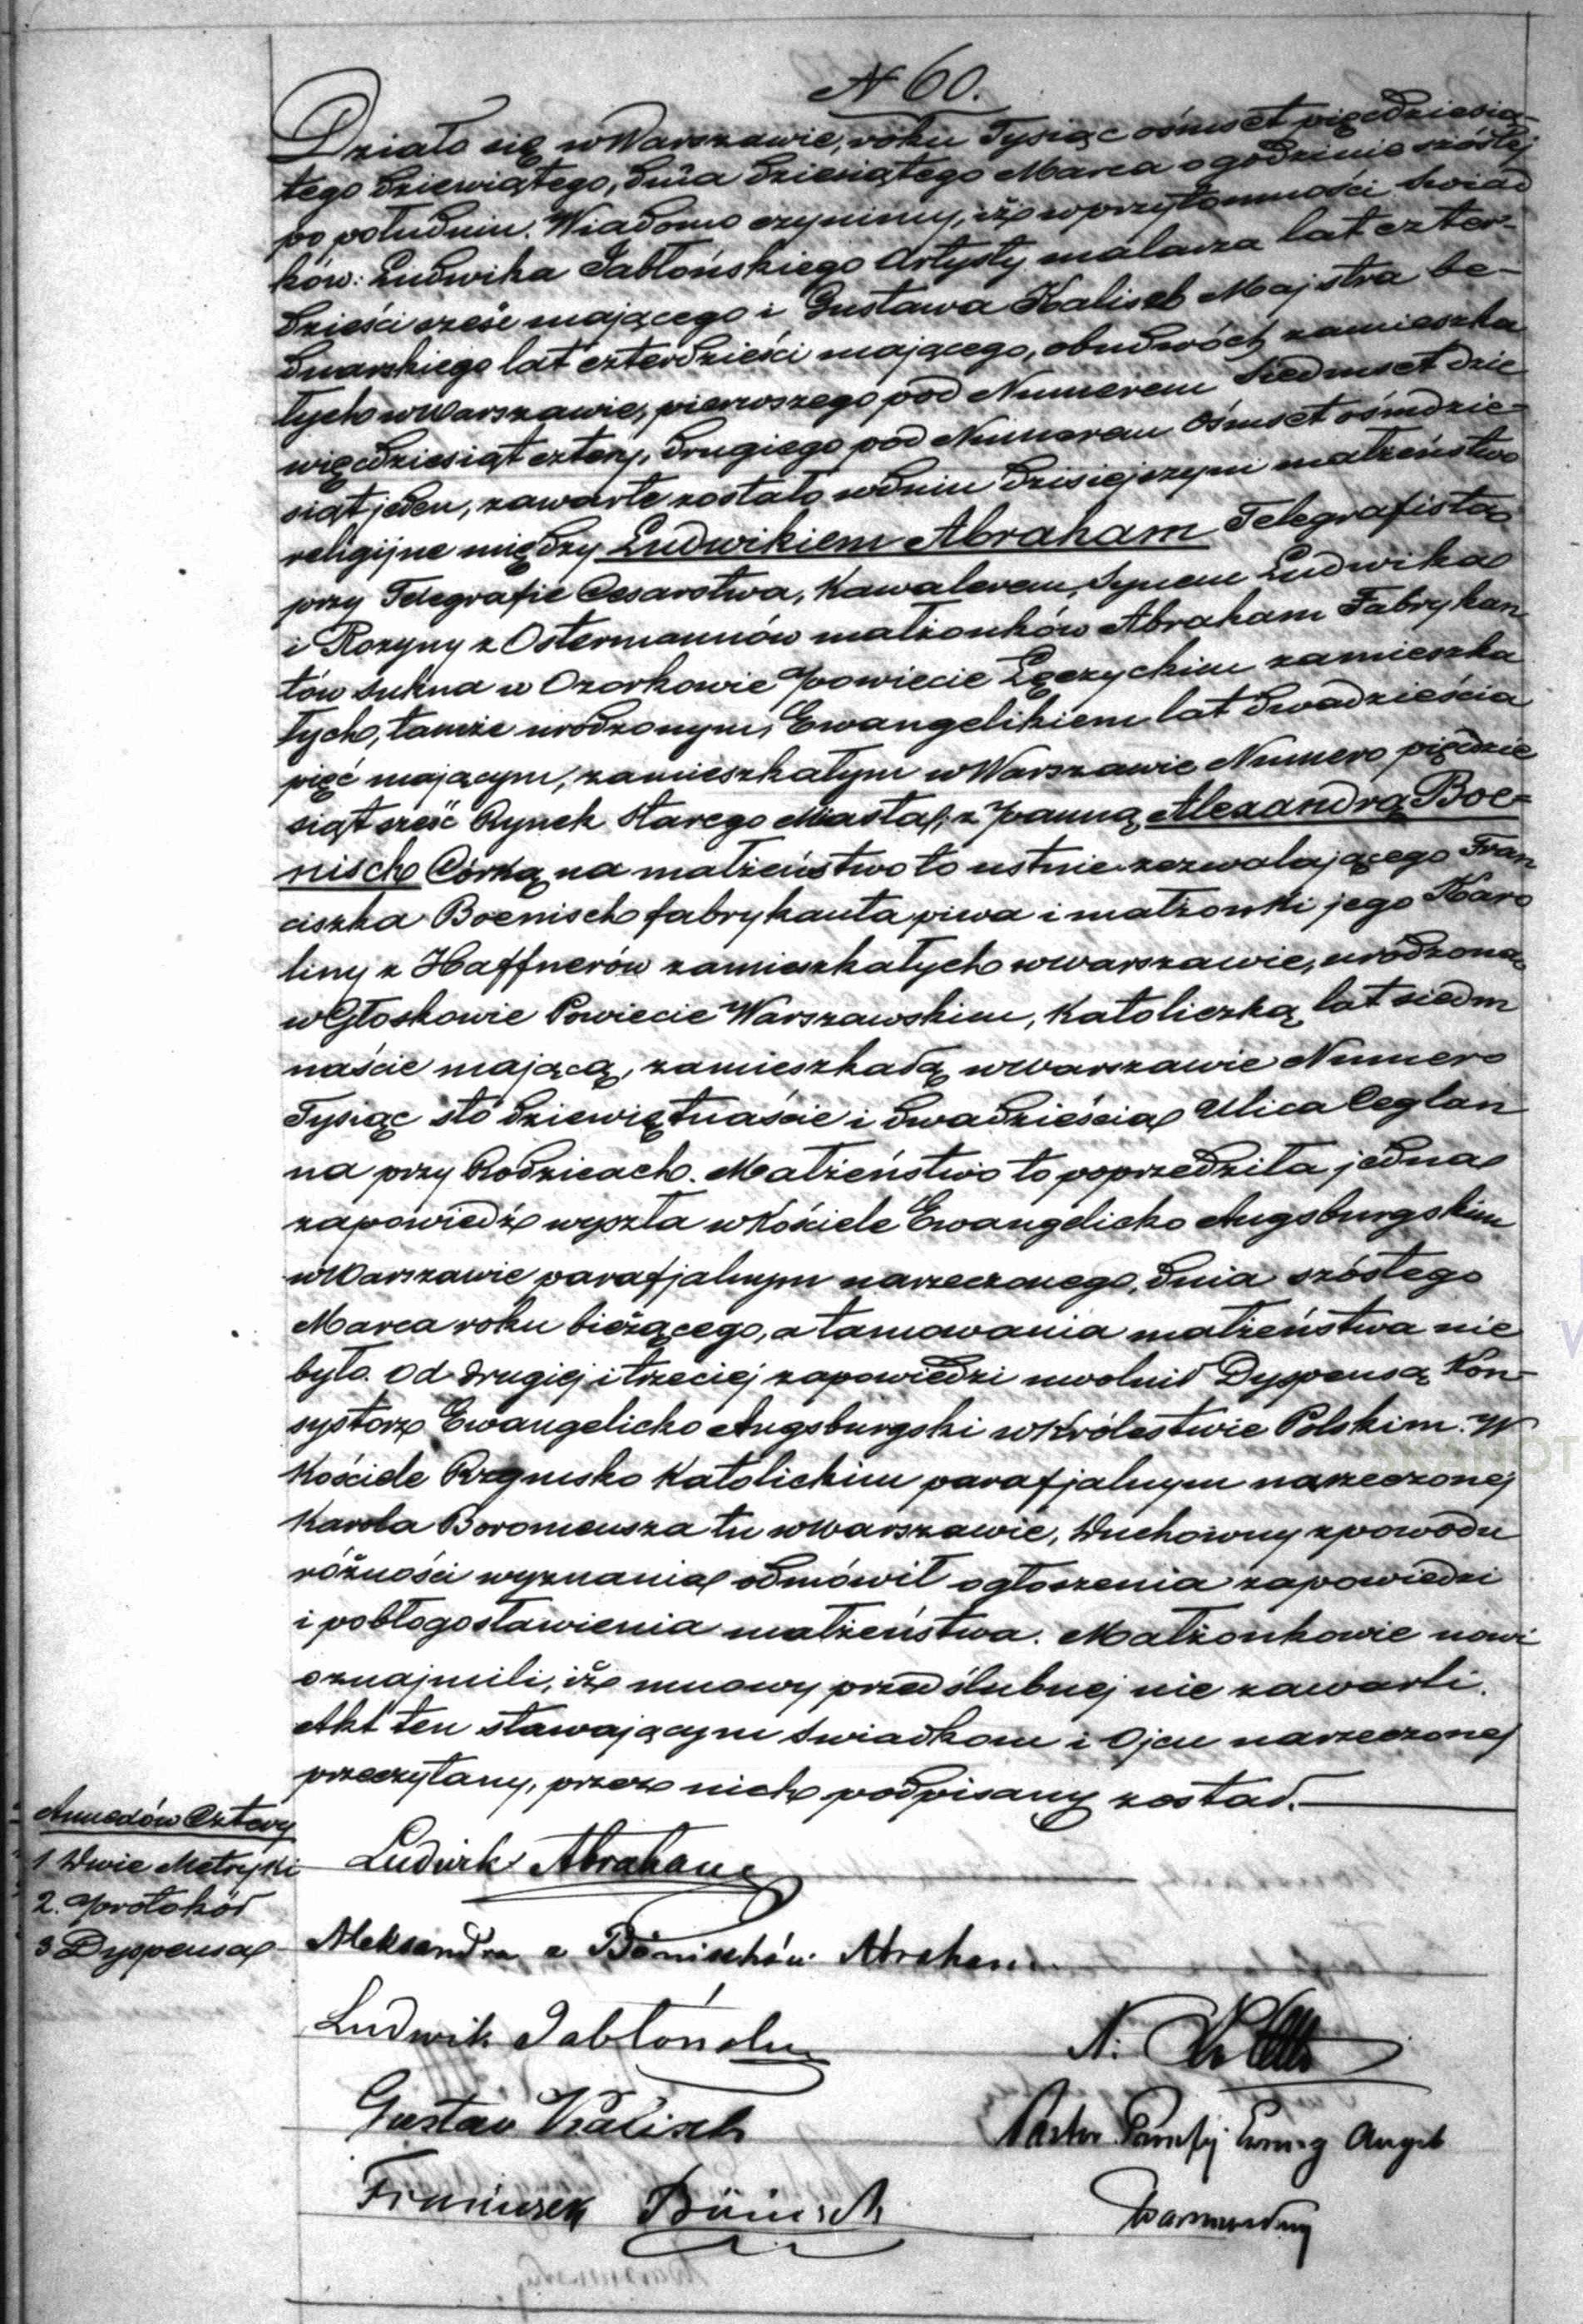 N 60.
Działo się w Warszawie, roku Tysiąc ośmset pięćdziesią-
tego dziewiątego, dnia dziesiątego Marca o godzinie szóstej
po południu. Wiadomo czynimy, iż w przytomności Świad
ków: Ludwika Jabłońskiego Artysty malarza lat czter-
dzieści sześć mającego i Gustawa Kalisch Majstra be-
dnarskiego lat czterdzieści mającego, obudwóch zamieszka
łych w Warszawie, pierwszego pod Numerem Siedmset dzie
więćdziesiąt cztery, drugiego pod Numerem Ośmset ośmdzie-
siąt jeden, zawarte zostało w dniu dzisiejszym małżeństwo
religijne między Ludwikiem Abraham Telegrafistą
przy Telegrafie Cesarstwa, Kawalerem, Synem Ludwika
i Rozyny z Ostermannów małżonków Abraham Fabrykan
tów Sukna w Ozorkowie Powiecie Łęczyckim zamieszka
łych, tamże urodzonym, Ewangelikiem lat dwadzieścia
pięć mającym, zamieszkałym w Warszawie Numero pięćdzie
siąt sześć Rynek Starego Miasta, z Panną Alexandrą Boe-
nisch Córką na małżeństwo to ustnie zezwalającego Fran
ciszka Boenisch fabrykanta piwa i małżonki jego Karo
liny z Haffnerów zamieszkałych w Warszawie, urodzoną
w Głoskowie Powiecie Warszawskim, Katoliczką lat siedm
naście mającą, zamieszkałą w Warszawie Numero
Tysiąc sto dziewiętnaście i dwadzieścia Ulica Ceglan
na przy Rodzicach. Małżeństwo to poprzedziła jedna
zapowiedź wyszła w Kościele Ewangelicko Augsburgskim
w Warszawie parafjalnym narzeczonego, dnia szóstego
Marca roku bieżącego, a tamowania małżeństwa nie
było. Od drugiej i trzeciej zapowiedzi uwolnił Dyspensą Kon-
systorz Ewangelicko Augsburgski w Królestwie Polskim. W
Kościele Rzymsko Katolickim parafjalnym narzeczonej
Karola Boromeusza tu w Warszawie, Duchowny z powodu
różności wyznania odmówił ogłoszenia zapowiedzi
i pobłogosławienia małżeństwa. Małżonkowie nowi
oznajmili, iż umowy przedślubnej nie zawarli.
Akt ten stawającym Świadkom i Ojcu narzeczonej
przeczytany, przez nich podpisany został.
Annexów Cztery
1 Dwie Metryki
2. Protokół
3 Dyspensa
Ludwik Abraham
Aleksandra z Bönischów Abraham
Ludwik Jabłoński
Gustav Kalisch
Franciszek Bönisch
Pastor Parafji Ewang Augsb
Warszawskiej